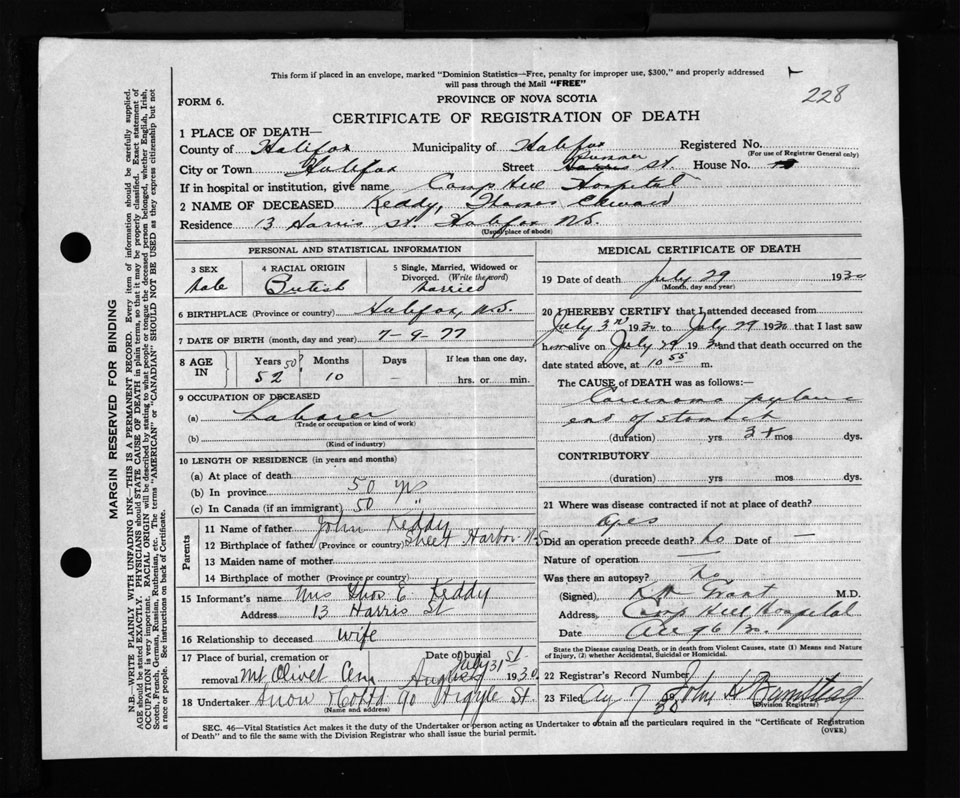 This form if placed in an envelope, marked "Dominion Statistics—Free, penalty for improper use, $300," and properly addressed
will pass through the Mail "FREE"
228
FORM 6.
PROVINCE OF NOVA SCOTIA
CERTIFICATE OF REGISTRATION OF DEATH
1 PLACE OF DEATH—
County of Halifax Municipality of Halifax Registered No.
(For use of Registrar General only)
City or Town Halifax Street Harris Summer St. House No.
If in hospital or institution, give name Camp Hill Hospital
2 NAME OF DECEASED Keddy, Thomas Edward
Residence 13 Harris St. Halifax N.S.
(Usual place of abode)
PERSONAL AND STATISTICAL INFORMATION
3 SEX
Male
4 RACIAL ORIGIN
British
5 Single, Married, Widowed or
Divorced. (Write the word)
Married
6 BIRTHPLACE (Province or country) Halifax, N.S.
7 DATE OF BIRTH (month, day and year) 7-9-77
8 AGE IN
Years 50? 52
Months 10
Days
If less than one day,
hrs. or min.
9 OCCUPATION OF DECEASED
(a) Labourer
(Trade or occupation or kind of work)
(b)
(Kind of industry)
10 LENGTH OF RESIDENCE (in years and months)
(a) At place of death
(b) In province 50 yrs
(c) In Canada (if an immigrant) 50 "
Parents
11 Name of father John Keddy
12 Birthplace of father (Province or country) Sheet Harbor N-S
13 Maiden name of mother
14 Birthplace of mother (Province or country)
15 Informant's name Mrs Thos E. Keddy
Address 13 Harris St
16 Relationship to deceased wife
17 Place of burial, cremation or
removal Mt Olivet Cem
Date of burial
July 31 st August 1930
18 Undertaker Snow & Co Ltd 90 Argyle St.
(Name and address)
MEDICAL CERTIFICATE OF DEATH
19 Date of death July 29 1930
(Month, day and year)
20 I HEREBY CERTIFY that I attended deceased from
July 3rd 1930 to July 29 1930 that I last saw
him alive on July 29 1930 and that death occurred on the
date stated above, at 10 55 m.
The CAUSE of DEATH was as follows:—
Carcinoma pyloric
end of stomach
(duration) yrs 3+ mos dys.
CONTRIBUTORY
(duration) yrs mos dys.
21 Where was disease contracted if not at place of death?
Did an operation precede death? No Date of —
Nature of operation —
Was there an autopsy? No
(Signed), Grant M.D.
Address, Camp Hill Hospital
Date Aug 6 30
State the Disease causing Death, or in death from Violent Causes, state (1) Means and
Nature of Injury, (2) whether Accidental, Suicidal or Homicidal.
22 Registrar's Record Number
23 Filed Aug 7 30 John H Barnstead
(Division Registrar)
SEC. 46—Vital Statistics Act makes it the duty of the Undertaker or person acting as Undertaker to obtain all the particulars required in the "Certificate of Registration
of Death" and to file the same with the Division Registrar who shall issue the burial permit.
(OVER)
MARGIN RESERVED FOR BINDING
N.B. WRITE PLAINLY WITH UNFADING INK—THIS IS A PERMANENT RECORD. Every item of information should be carefully supplied.
AGE should be stated EXACTLY. PHYSICIANS should STATE CAUSE OF DEATH in plain terms, so that it may be properly classified. Exact statement of
OCCUPATION is very important. RACIAL ORIGIN will be described by stating to what people or tongue the deceased person belonged, whether English, Irish,
Scotch, French, German, Russian, Ruthenian, etc. The terms "AMERICAN" or "CANADIAN" SHOULD NOT BE USED as they express citizenship but not
a race or people. See instructions on back of Certificate.